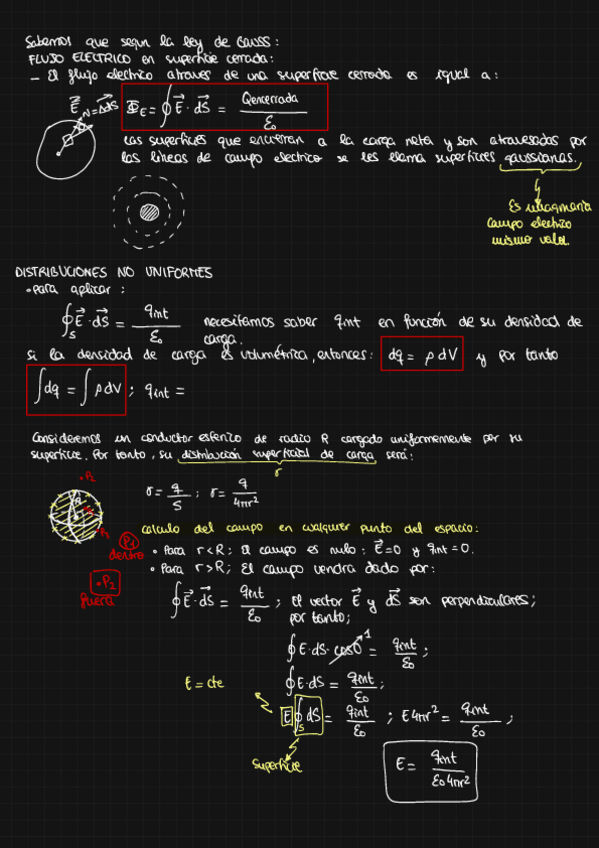 Sabemos que segun la ley de Gauss:
FLUJO ELECTRICO en superficie cerrada:
– El flujo electrico atraves de una superficie cerrada es igual a:
E⃗ N=ΔdS Φ_E = ∮ E⃗ · dS⃗ = Qencerrada / ε₀
Las superficies que encierran a la carga neta y son atravesadas por
las lineas de campo electrico se les llama superficies gaussianas.
Es imaginaria
campo electrico
mismo valor.
DISTRIBUCIONES NO UNIFORMES
• para aplicar:
∮_S E⃗ · dS⃗ = qint / ε₀ necesitamos saber qint en función de su densidad de
carga.
si la densidad de carga es volumétrica, entonces: dq = ρ dV y por tanto
∫dq = ∫ρ dV ; qint =
Consideremos un conductor esferico de radio R cargado uniformemente por su
superficie. Por tanto, su distribución superficial de carga será:
σ
σ = q / S ; σ = q / 4πr²
•P₂
R
P₁
calculo del campo en cualquier punto del espacio:
P₁
dentro
• Para r < R; El campo es nulo: E⃗ = 0 y qint = 0.
• Para r > R; El campo vendra dado por:
•P₂
fuera
∮ E⃗ · dS⃗ = qint / ε₀ ; El vector E⃗ y dS⃗ son perpendiculares;
por tanto;
∮ E · dS · cos0 ¹ = qint / ε₀ ;
E = cte
∮ E · dS = qint / ε₀ ;
E ∮_S dS = qint / ε₀ ; E 4πr² = qint / ε₀ ;
Superficie
E = qint / ε₀ 4πr²